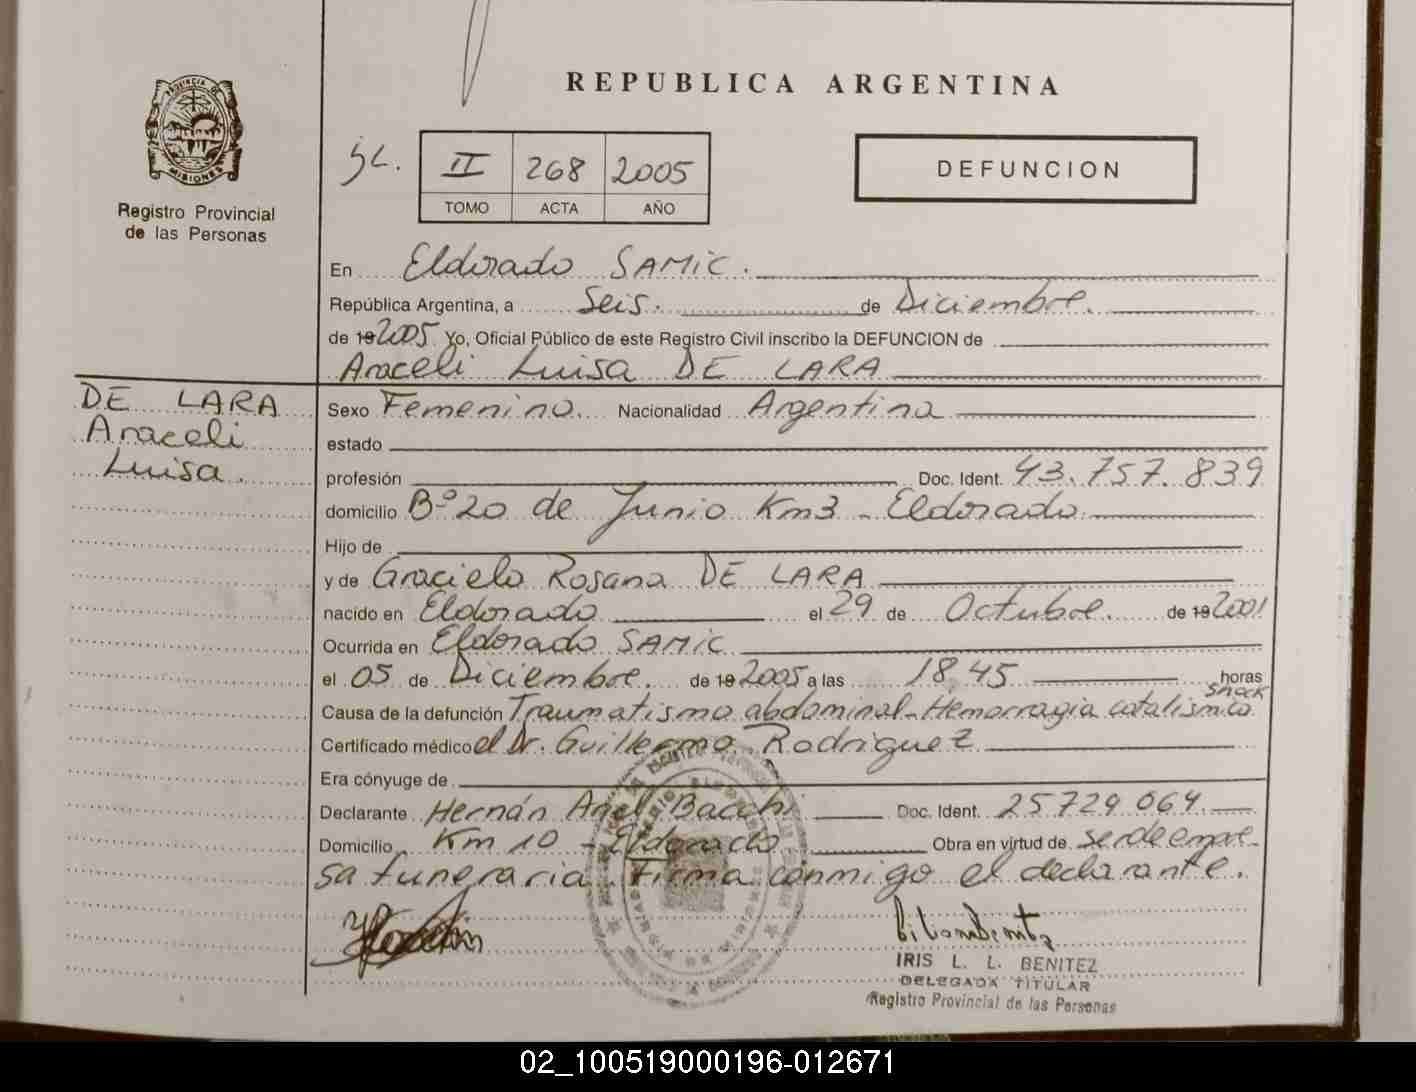 REPUBLICA ARGENTINA
PROVINCIA DE
MISIONES
Registro Provincial
de las Personas
II 268 2005
TOMO ACTA AÑO
DEFUNCION
En Eldorado SAMIC.
República Argentina, a Seis. de Diciembre.
de 19 2005 Yo, Oficial Público de este Registro Civil inscribo la DEFUNCION de
Araceli Luisa DE LARA
DE LARA
Araceli
Luisa.
Sexo Femenino. Nacionalidad Argentina
estado
profesión Doc. Ident. 43.757.839
domicilio Bº 20 de Junio Km3 - Eldorado.
Hijo de
y de Graciela Rosana DE LARA
nacido en Eldorado el 29 de Octubre. de 19 2001
Ocurrida en Eldorado SAMIC
el 05 de Diciembre. de 19 2005 a las 18,45 horas
Causa de la defunción Traumatismo abdominal - Hemorragia shock
Certificado médico el Dr. Guillermo Rodriguez
Era cónyuge de
Declarante Hernán Bacchi Doc. Ident. 25729.064.
Domicilio Km 10 - Eldorado Obra en virtud de ser de empre-
sa funeraria. Firma conmigo el declarante.
IRIS L. L. BENITEZ
DELEGADA TITULAR
Registro Provincial de las Personas
02_100519000196-012671